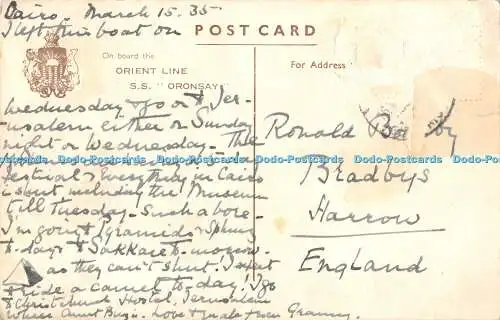 Cairo. March 15. 35.
I left this boat on
POST CARD
On board the
ORIENT LINE
S.S. "ORONSAY"
For Address
Wednesday & go on to Jer-
usalem either on Sunday
night or Wednesday. The
festival & everything in Cairo
is shut including the Museum
till Tuesday. Such a bore.
I'm going to Pyramids & Sphinx
to-day & to Sakkare to-morrow
as they can't shut! I expect
to ride a camel to-day! I go
to Christchurch Hostel, Jerusalem
where Aunt is. Love from Granny.
Ronald
Bradbys
Harrow
England
Dodo-Postcards Dodo-Postcards Dodo-Postcards Dodo-Postcards
Dodo-Postcards Dodo-Postcards Dodo-Postcards Dodo-Postcards